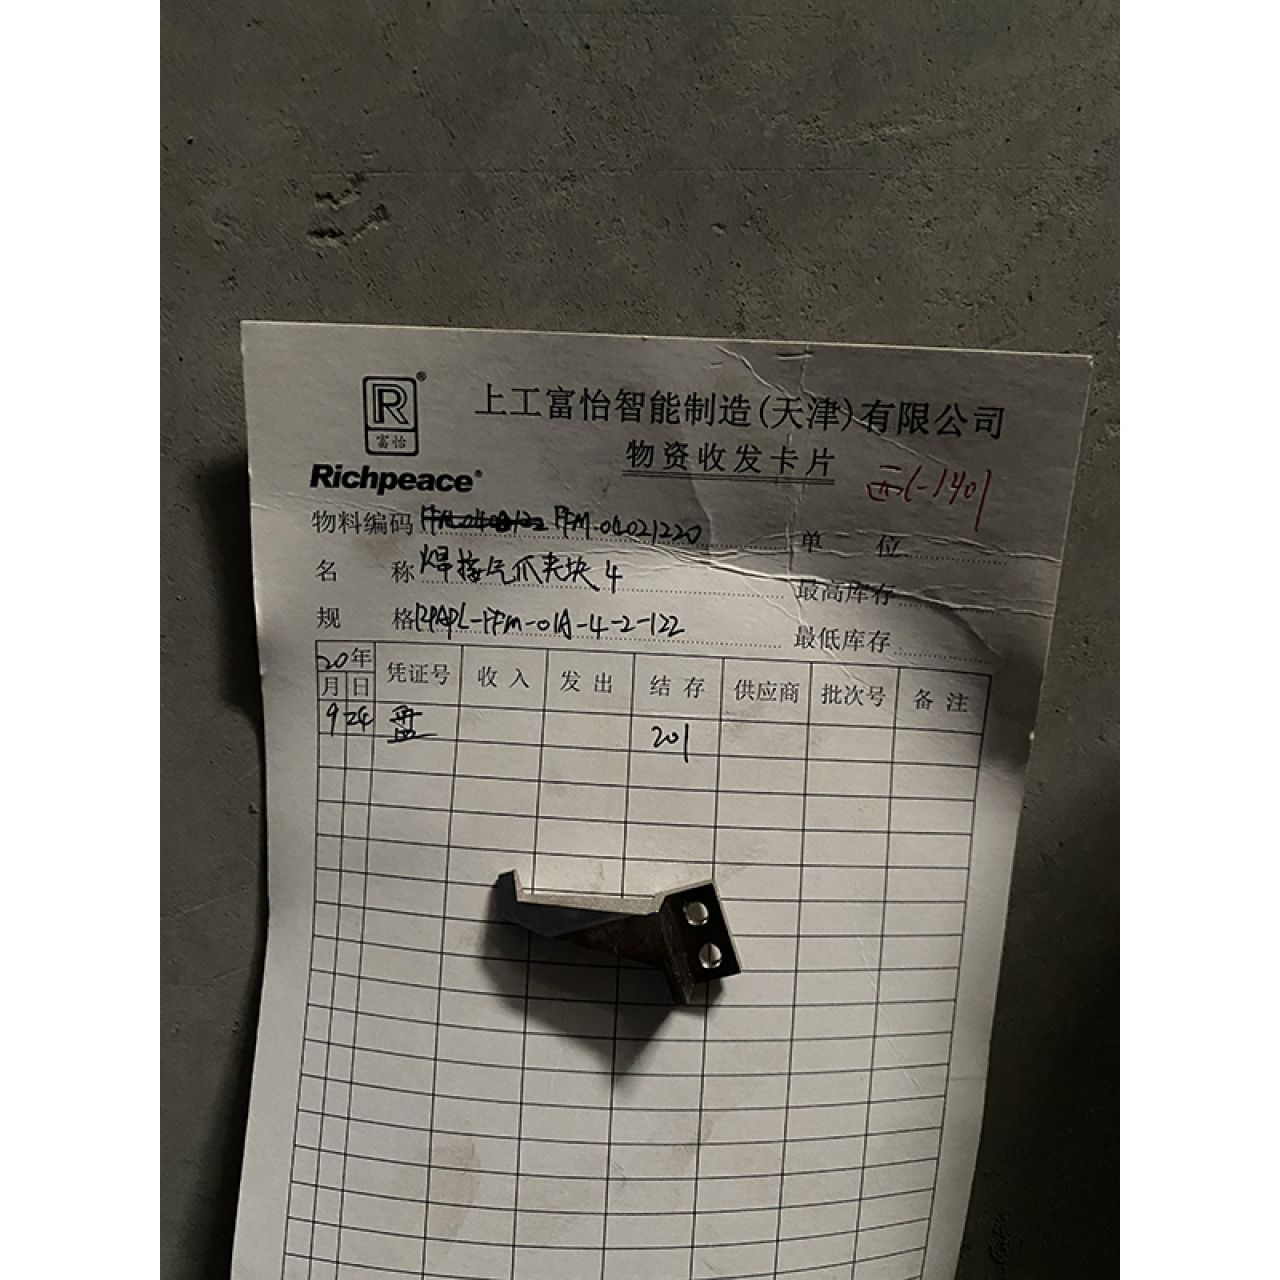 R®
富怡
Richpeace®
上工富怡智能制造(天津)有限公司
物资收发卡片
-1401
物料编码 FFM.04021220 单位
名称 焊接气爪夹块4 最高库存
规格 RPAPL-FFM-01A-4-2-122 最低库存
20年 凭证号 收入 发出 结存 供应商 批次号 备注
月 日
9 24 盘 201